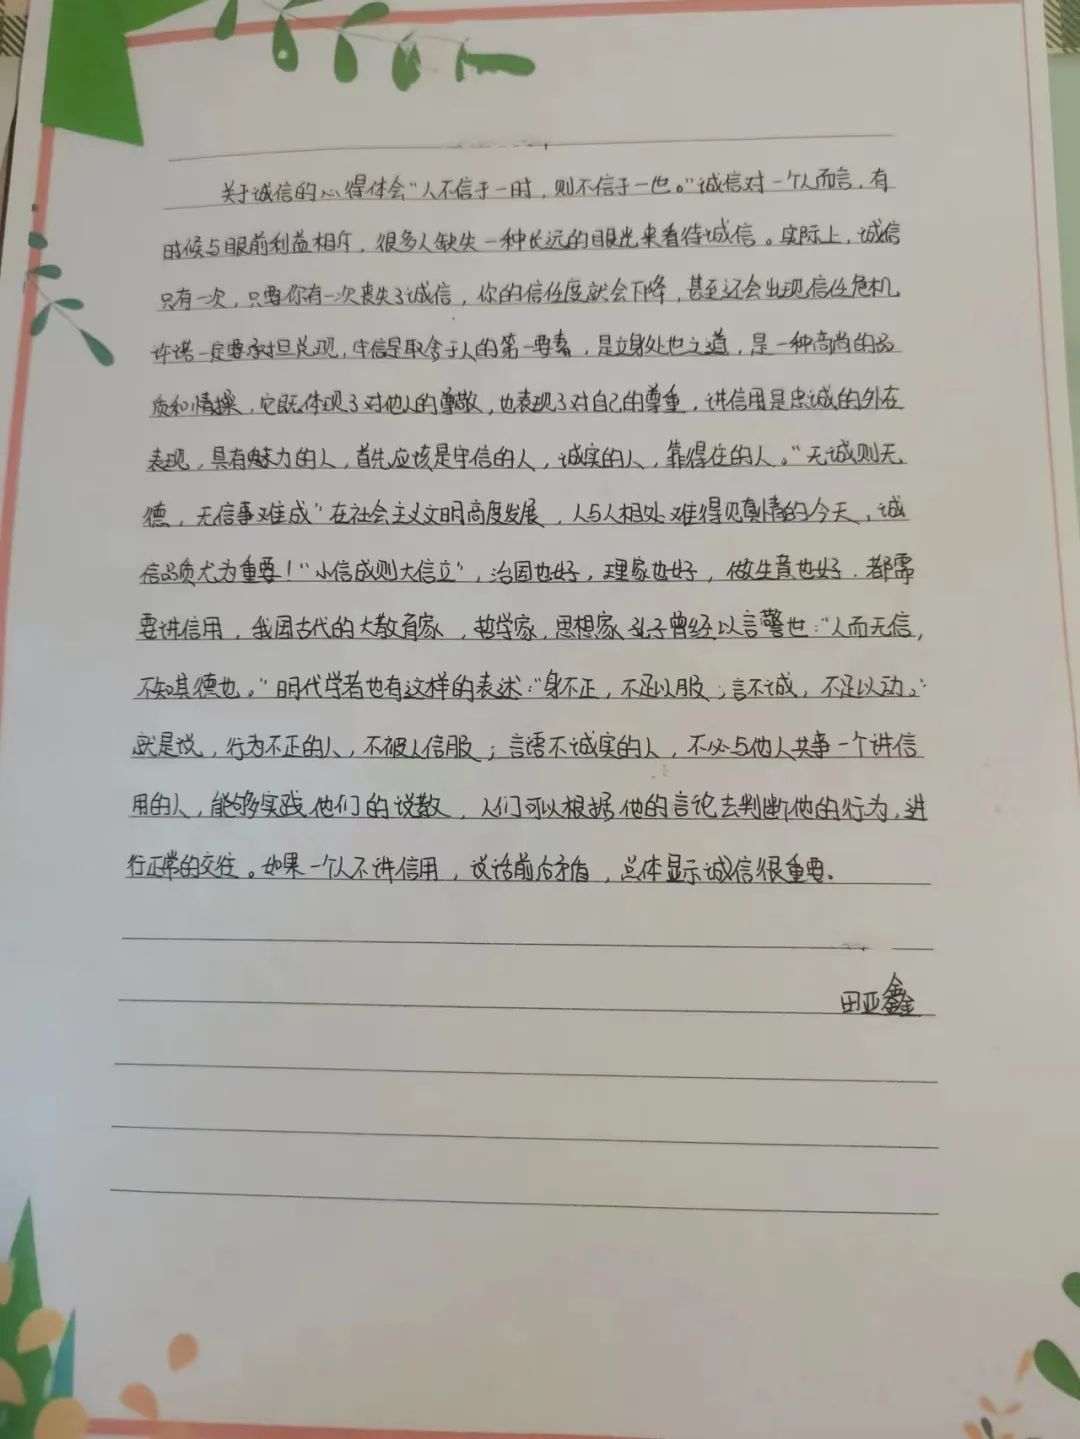 关于诚信的心得体会"人不信于一时，则不信于一世。"诚信对一个人而言，有
时候与眼前利益相斥，很多人缺失一种长远的眼光来看待诚信。实际上，诚信
只有一次，只要你有一次丧失了诚信，你的信任度就会下降，甚至还会出现信任危机
许诺一定要承担兑现，守信是取舍于人的第一要素，是立身处世之道，是一种高尚的品
质和情操，它既体现了对他人的尊敬，也表现了对自己的尊重，讲信用是忠诚的外在
表现，具有魅力的人，首先应该是守信的人，诚实的人，靠得住的人。"无诚则无
德，无信事难成"在社会主义文明高度发展，人与人相处难得见真情的今天，诚
信品质尤为重要！"小信成则大信立"，治国也好，理家也好，做生意也好．都需
要讲信用，我国古代的大教育家，哲学家，思想家孔子曾经以言警世："人而无信，
不知其德也。"明代学者也有这样的表述："身不正，不足以服；言不诚，不足以动。"
就是说，行为不正的人，不被人信服；言语不诚实的人，不必与他人共事一个讲信
用的人，能够实践他们的说教，人们可以根据他的言论去判断他的行为，进
行正常的交往。如果一个人不讲信用，说话前后矛盾，总体显示诚信很重要。
田亚鑫